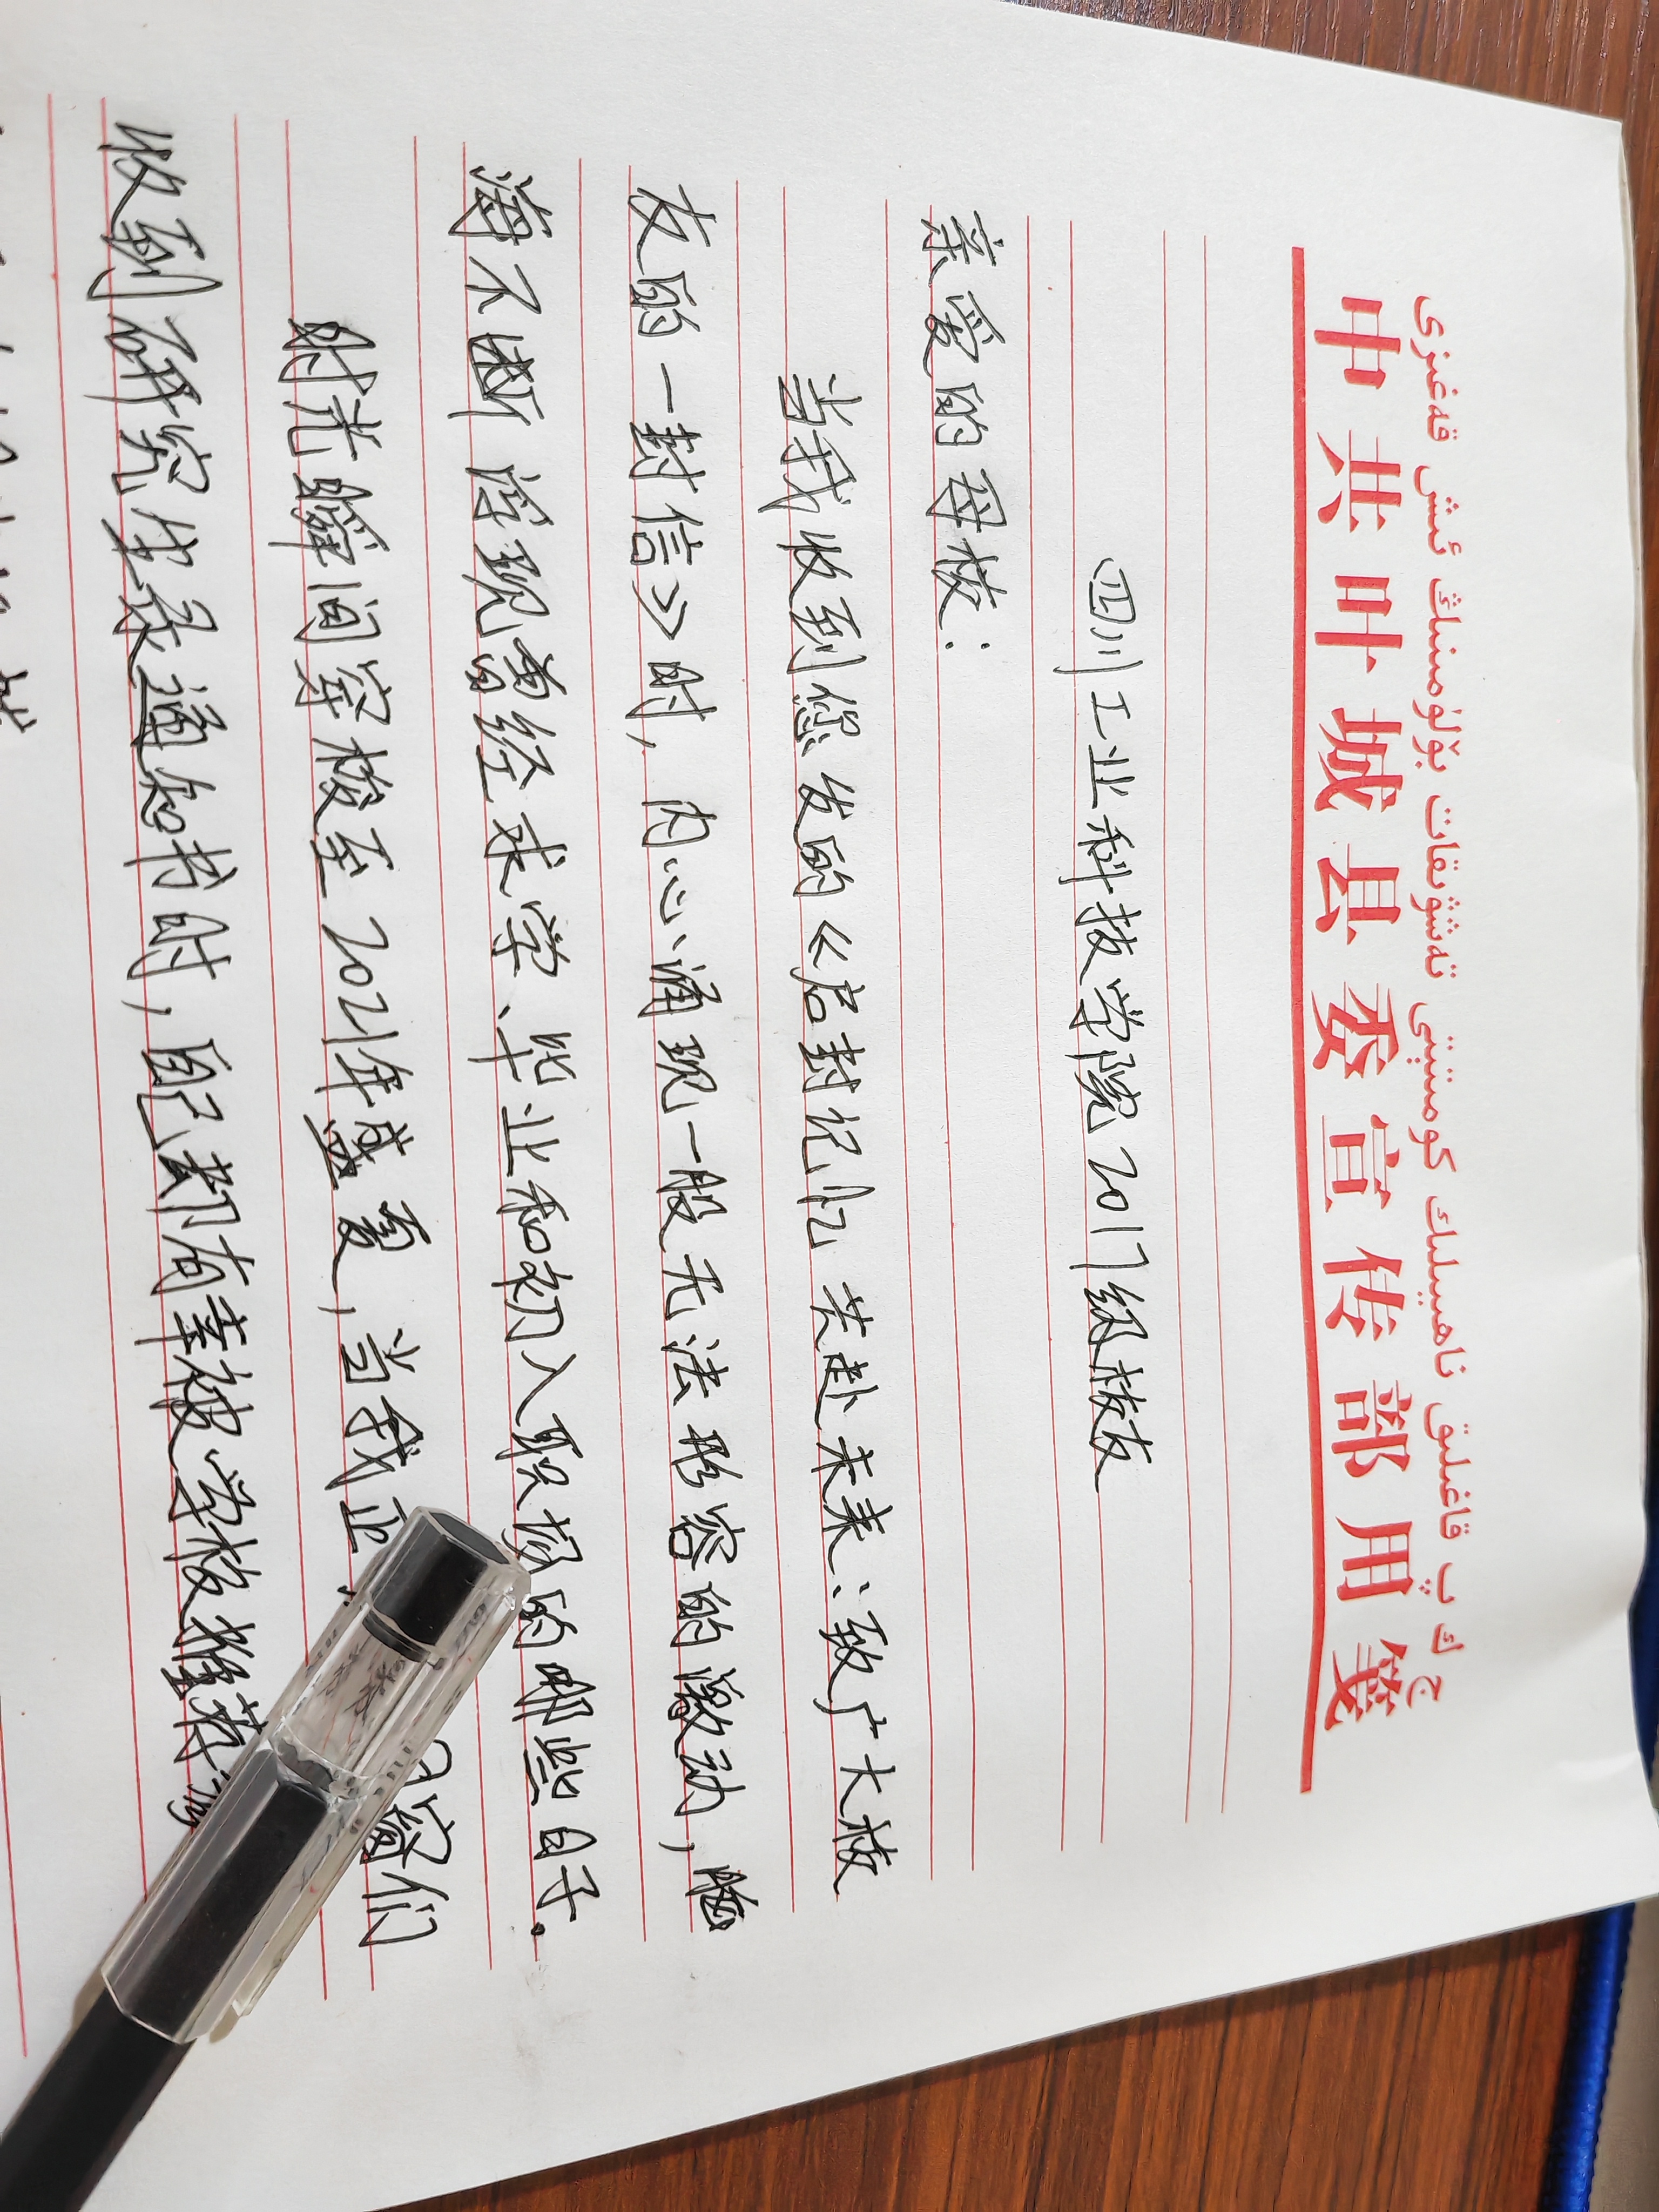 ق‍ا‍غ‍ى‍ل‍ى‍ق ناھىيىلىك كومىتېتى تەشۋىقات بۆلۈمىنىڭ ئىش قەغىزى
中共叶城县委宣传部用笺
四川工业科技学院2017级校友
亲爱的母校：
当我收到您发的《启封记忆 共赴未来：致广大校
友的一封信》时，内心涌现一股无法形容的激动，脑
海不断浮现曾经求学、毕业和初入职场的哪些日子。
时光瞬间穿梭至2021年盛夏，当我
们
收到研究生录通知书时，自己却有幸被学校推荐